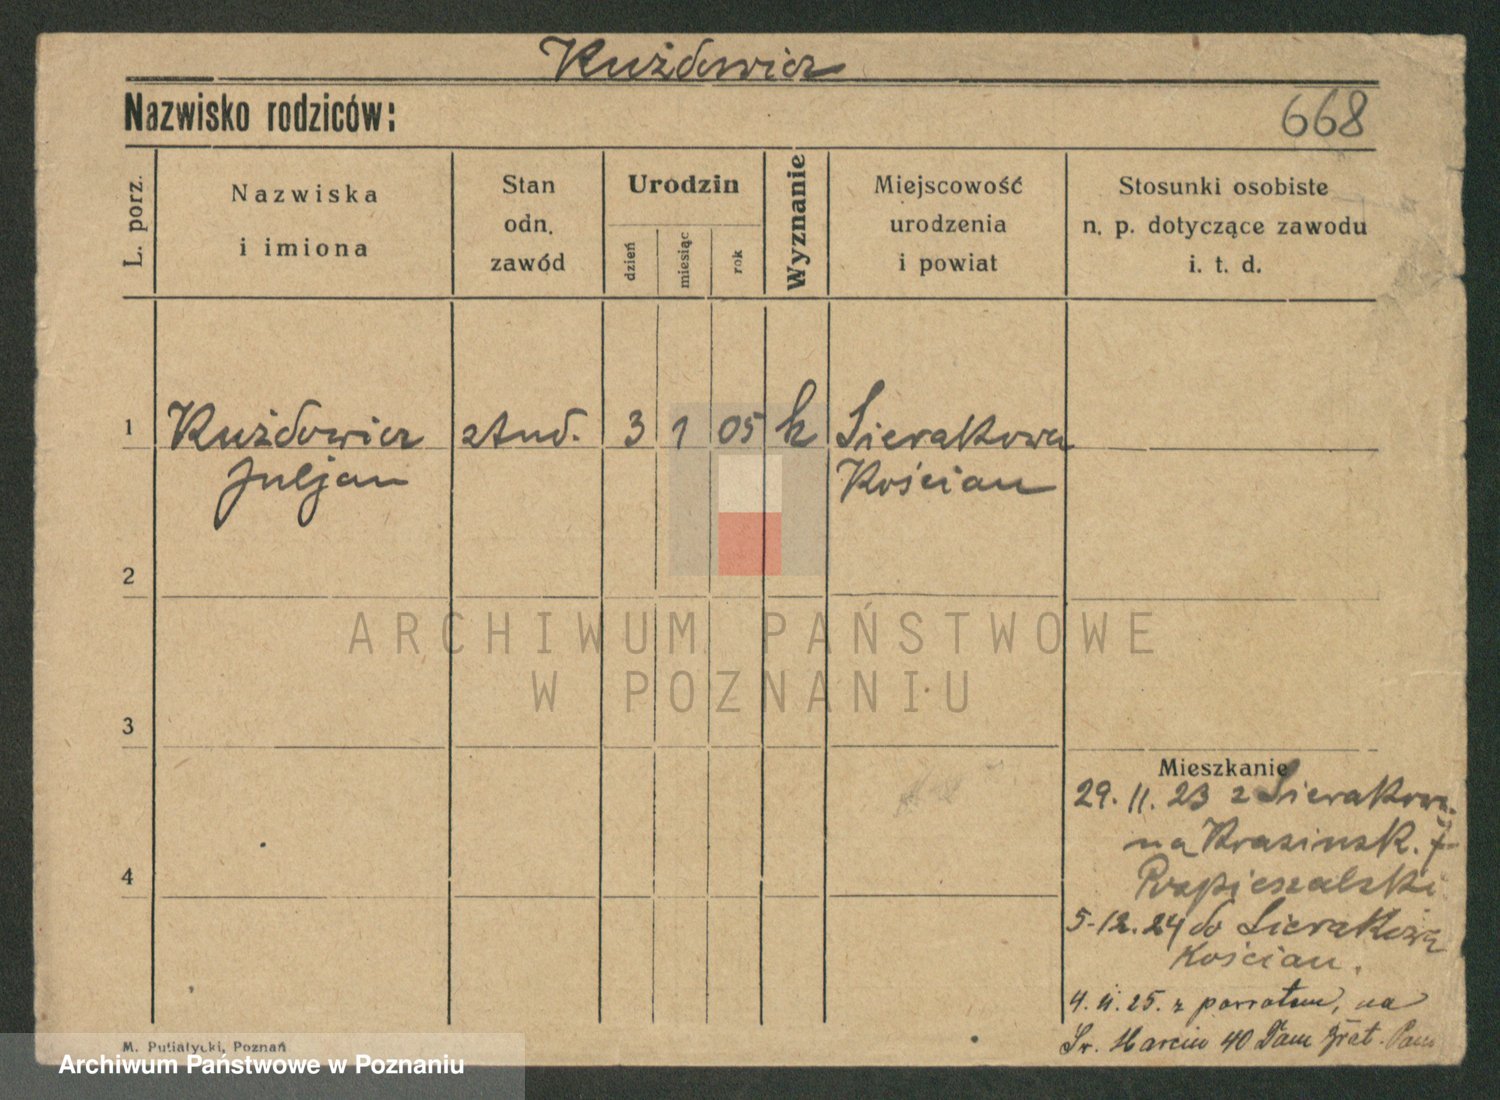 Kużdowicz
Nazwisko rodziców:
668
L. porz.
Nazwiska
i imiona
Stan
odn.
zawód
Urodzin
dzień
miesiąc
rok
Wyznanie
Miejscowość
urodzenia
i powiat
Stosunki osobiste
n. p. dotyczące zawodu
i. t. d.
1 Kużdowicz stud. 3 1 05 k Sierakowo
Juljan Kościan
2
ARCHIWUM PAŃSTWOWE
W POZNANIU
3
Mieszkanie
29. 11. 23 z Sierakowa
na Krasinsk. 7
4
5-12. 24 do Sierakowa
Kościan.
4. 11. 25. z powrotem, na
Św. Marcin 40
M. Putiatycki, Poznań
Archiwum Państwowe w Poznaniu